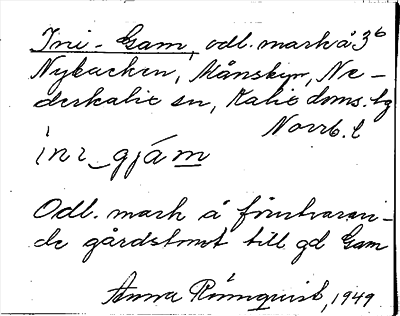 Ini-Gam, odl. mark å 3⁶
Nybacken, Månsbyn, Ne-
derkalix sn, Kalix doms. hg
Norrb. l
ìnɩ_gjám
Odl. mark å förutvaran-
de gårdstomt till gd Gam
Anna Rönnquist, 1949